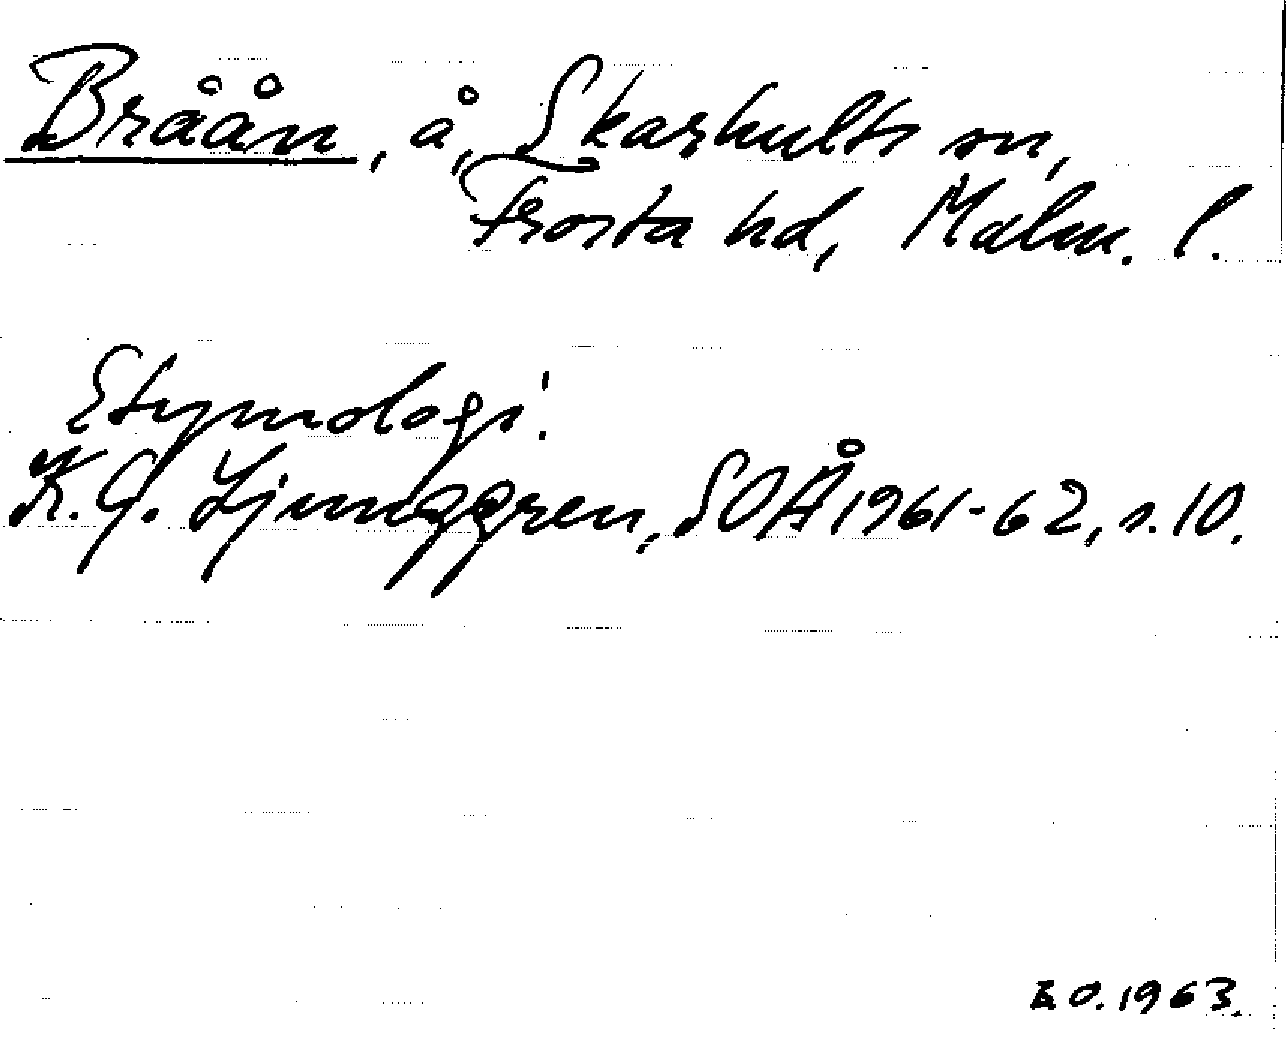 Bråån, å, Skarhults sn,
Frosta hd, Malm. l.
Etymologi:
K.G. Ljunggren, SOÅ 1961-62, s. 10.
O. 1963.